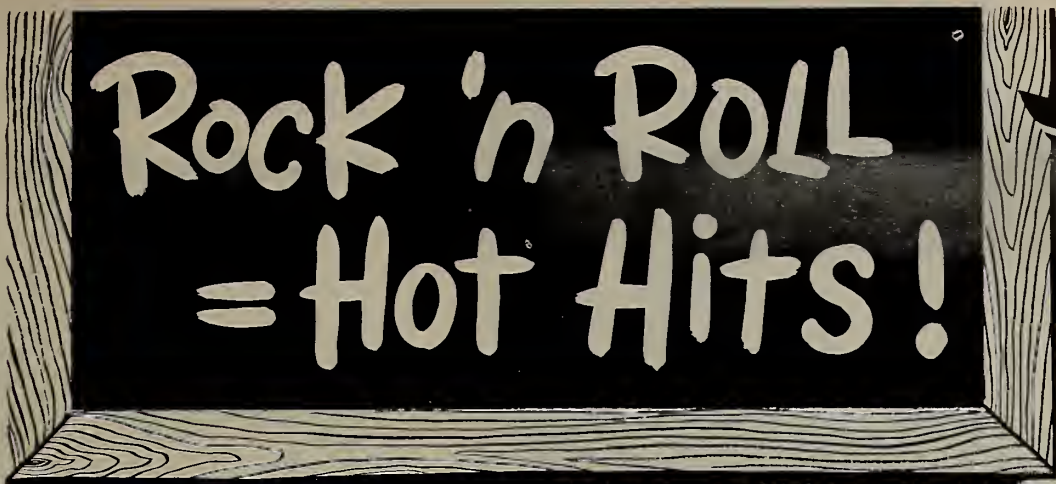 Rock 'n Roll
= Hot Hits!